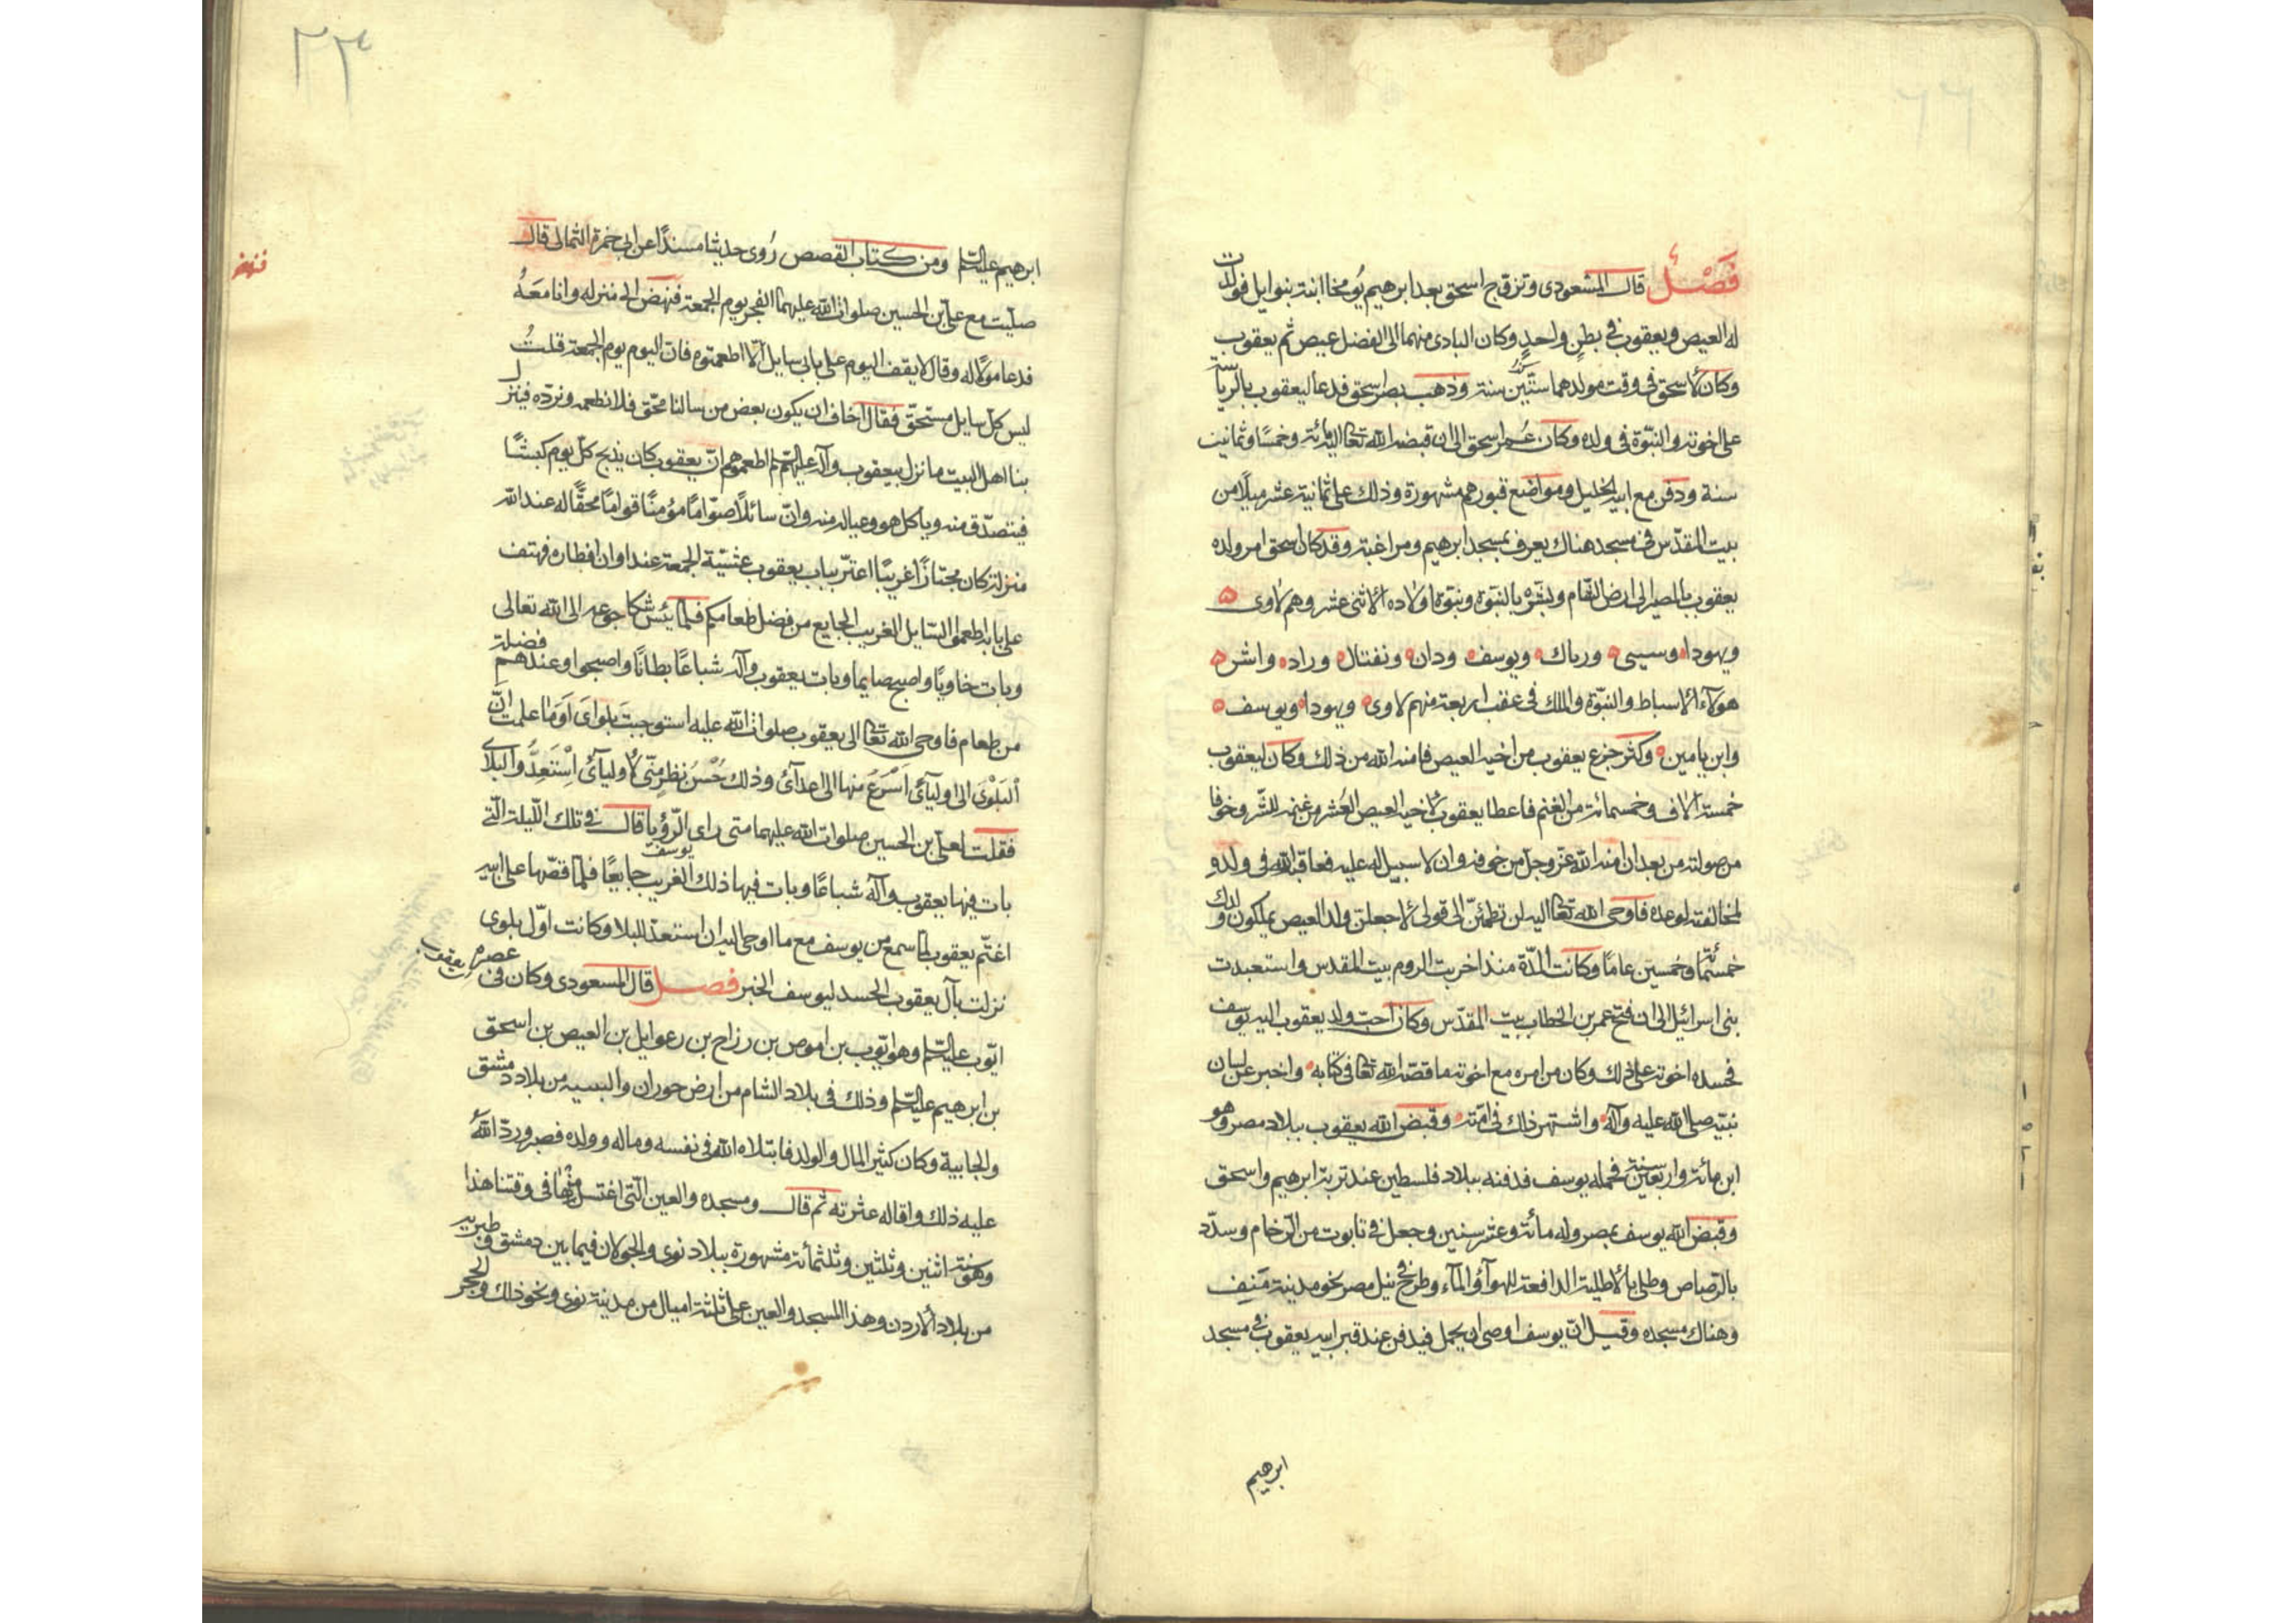 فصل قال المسعودى وتزوج اسحق بعد ابرهيم يومخا ابنة بنوايل فولدت
له العيص ويعقوب فى بطن واحد وكان البادى منهما الى الفضل عيص ثم يعقوب
وكان لاسحق فى وقت مولدهما ستين سنة وذهب بصر اسحق فدعا ليعقوب بالرياسة
على اخوته والنبوة فى ولده وكان عمر اسحق الى ان قبضه الله تعالى اليه مائة وخمسا وثمانين
سنة ودفن مع ابيه الخليل ومواضع قبورهم مشهورة وذلك على ثمانية عشر ميلا من
بيت المقدس فى مسجد هناك يعرف بمسجد ابرهيم ومراغبة وقد كان اسحق امر ولده
يعقوب بالمصير الى ارض الشام وبشره بالنبوة ونبوة اولاده الاثنى عشر وهم لاوى
ويهودا وسيسى ورباك ويوسف ودان ونفتال وراد واشر
هولاء الاسباط والنبوة والملك فى عقب اربعة منهم لاوى ويهودا ويوسف
وابن يامين وكثر جزع يعقوب من اخيه العيص فامنه الله من ذلك وكان ليعقوب
خمسة الاف وخمسمائة من الغنم فاعطا يعقوب لاخيه العيص العشر من غنمه للشر وخوفا
من صولته من بعد ان امنه الله عز وجل من خوفه وان لا سبيل له عليه فعاقبه الله فى ولده
لمخالفته لوعده فاوحى الله تعالى اليه لن تطمئن الى قولى لاجعلن ولد العيص يملكون ولدك
خمسمائة وخمسين عاما وكانت المدة منذ اخربت الروم بيت المقدس واستعبدت
بنى اسرائيل الى ان فتح عمر بن الخطاب بيت المقدس وكان احب ولد يعقوب اليه يوسف
فحسده اخوته على ذلك وكان من امره مع اخوته ما قصه الله تعالى فى كتابه واخبر عن لسان
نبيه صلى الله عليه وآله واشتهر ذلك فى امته وقبض الله يعقوب ببلاد مصر وهو
ابن مائة واربعين سنة فحمله يوسف فدفنه ببلاد فلسطين عند تربة ابرهيم واسحق
وقبض الله يوسف بمصر وله مائة وعشر سنين وجعل فى تابوت من الرخام وسدد
بالرصاص وطلى بالاطلية الدافعة للهوآء والمآء وطرح فى نيل مصر نحو مدينة منف
وهناك مسجده وقيل ان يوسف اوصى ان يحمل فيدفن عند قبر ابيه يعقوب فى مسجد
ابرهيم
٢٣
ابرهيم عليه السلم ومن كتاب القصص روى حديثا مسندا عن ابى حمزة الثمالى قال
صليت مع على بن الحسين صلوات الله عليهما الفجر يوم الجمعة فنهض الى منزله وانا معه
فدعا مولاة له وقال لا يقف اليوم على بابى سايل الا اطعمتوه فان اليوم يوم الجمعة قلت
ليس كل سايل مستحق فقال اخاف ان يكون بعض من سالنا محق فلا نطعمه ونرده فينزل
بنا اهل البيت ما نزل بيعقوب وآله عليهم السلم اطعموهم ان يعقوب كان يذبح كل يوم كبشا
فيتصدق منه وياكل هو وعياله منه وان سائلا صواما مؤمنا قواما محقا له عند الله
منزلة كان مجتازا غريبا اعتر بباب يعقوب عشية الجمعة عند اوان افطاره فهتف
على بابه اطعموا السايل الغريب الجايع من فضل طعامكم فلما يئس شكا جوعه الى الله تعالى
وبات خاويا واصبح صايما وبات يعقوب وآله شباعا بطانا واصبحوا وعندهم فضلة
من طعام فاوحى الله تعالى الى يعقوب صلوات الله عليه استوجبت بلواى اوما علمت ان
البلوى الى اوليآئى اسرع منها الى اعدآئى وذلك حسن نظر منى لاوليآئى استعدوا لبلاى
فقلت لعلى بن الحسين صلوات الله عليهما متى راى الرؤيا قال فى تلك الليلة التى
بات فيها يعقوب وآله شباعا وبات فيها ذلك الغريب جايعا فلما قصها يوسف على ابيه
اغتم يعقوب لما سمع من يوسف مع ما اوحى اليه ان استعد للبلا وكانت اول بلوى
نزلت بآل يعقوب الحسد ليوسف الخبر فصل قال المسعودى وكان فى عصره يعقوب
ايوب عليه السلم وهو ايوب بن اموص بن رزاح بن رعوايل بن العيص بن اسحق
بن ابرهيم عليه السلم وذلك فى بلاد الشام من ارض حوران والبسيه من بلاد دمشق
والجابية وكان كثير المال والولد فابتلاه الله فى نفسه وماله وولده فصبر ورد الله
عليه ذلك واقاله عثرته ثم قال ومسجده والعين التى اغتسل منها فى وقتنا هذا
وهو سنة اثنين وثلثين وثلثمائة مشهورة ببلاد نوى والجولان فيما بين دمشق وطبريه
من بلاد الاردن وهذا المسجد والعين على ثلثة اميال من مدينة نوى ونحو ذلك والحجر